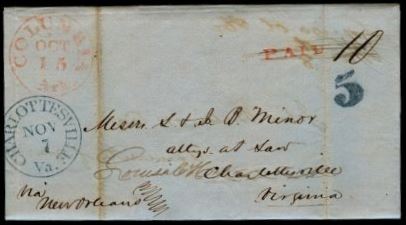 COLUMBIA
OCT
15
PAID 10
5
CHARLOTTESVILLE
NOV
7
Va.
Messrs L & J B Minor
attys at Law
Louisa
Charlottesville
Virginia
via
New Orleans